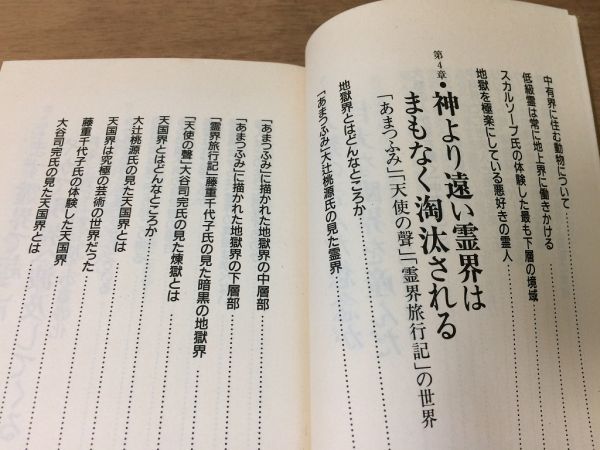 中有界に住む動物について
低級霊は常に地上界に働きかける
スカルソープ氏の体験した最も下層の境域
地獄を極楽にしている悪好きの霊人
第4章・神より遠い霊界は
まもなく淘汰される
「あまつふみ」「天使の聲」「霊界旅行記」の世界
地獄界とはどんなところか
「あまつふみ」大辻桃源氏の見た霊界
「あまつふみ」に描かれた地獄界の中層部
「あまつふみ」に描かれた地獄界の下層部
「霊界旅行記」藤重千代子氏の見た暗黒の地獄界
「天使の聲」大谷司完氏の見た煉獄とは
天国界とはどんなところか
大辻桃源氏の見た天国界とは
天国界は究極の芸術の世界だった
藤重千代子氏の体験した天国界
大谷司完氏の見た天国界とは